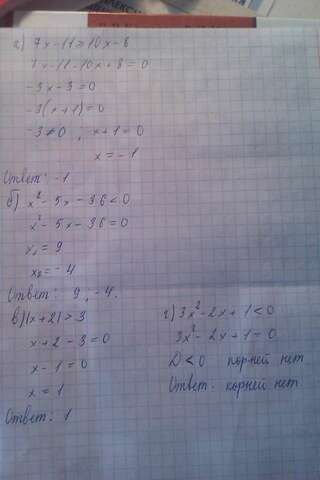 а) 7x-11≥10x-8
7x-11-10x+8=0
-3x-3=0
-3(x+1)=0
-3≠0 ; x+1=0
x=-1
Ответ: -1
б) x²-5x-36<0
x²-5x-36=0
x₁=9
x₂=-4
Ответ: 9, -4.
в) |x+2|>3
x+2-3=0
x-1=0
x=1
Ответ: 1
г) 3x²-2x+1<0
3x²-2x+1=0
D<0 корней нет
Ответ: корней нет